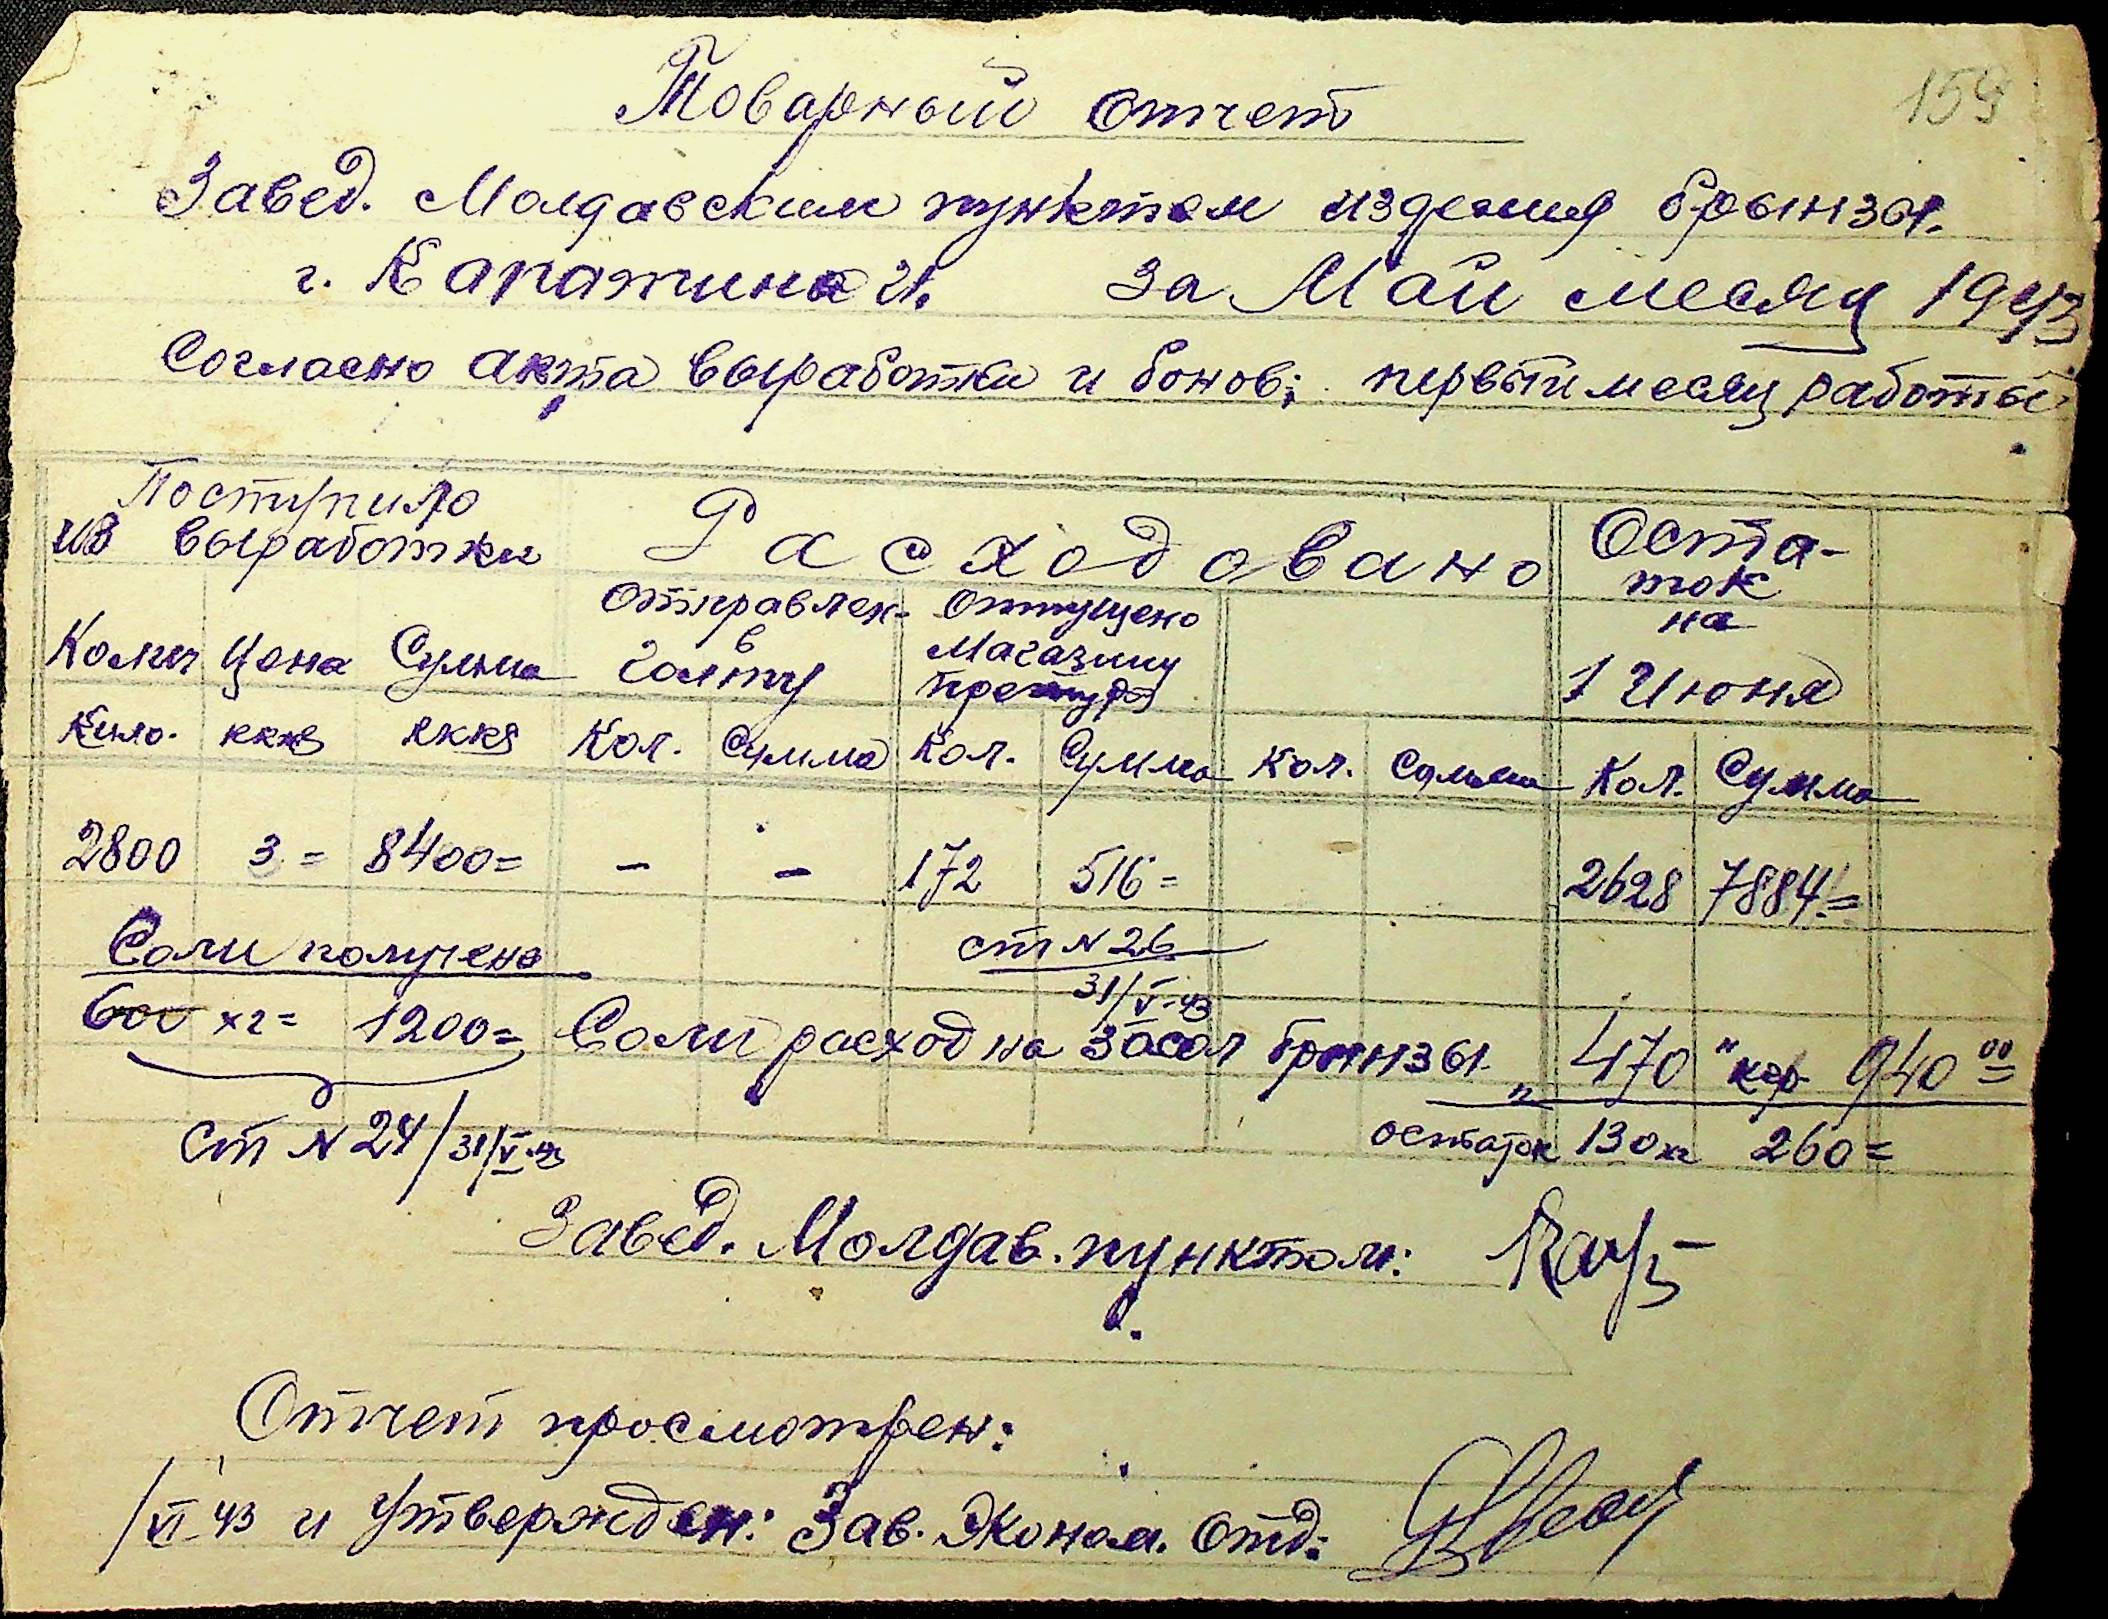 159
Товарный отчет
Завед. Молдавским пунктом изделия брынзы.
г. Каратина И. За Май месяц 1943
Согласно акта выработки и бонов; первый месяц работы
Поступило
из выработки
Расходовано
Оста-
ток
на
1 Июня
Колич Цена Сумма
Отправлен-
в
Голту
Отпущено
Магазину
Претура
Кило. ккк ккк Кол. Сумма Кол. Сумма Кол. Сумма Кол. Сумма
2800 3 = 8400= - - 172 516= 2628 7884.=
Соли получено
ст N 26
31/V-43
600 х2= 1200= Соли расход на засол брынзы. 470 " 940 00
ст N 24/31/V-43
остаток 130 кг 260=
Завед. Молдав. пунктом:
Отчет просмотрен:
/VI-43 и Утвержден: Зав. Эконом. Отд: